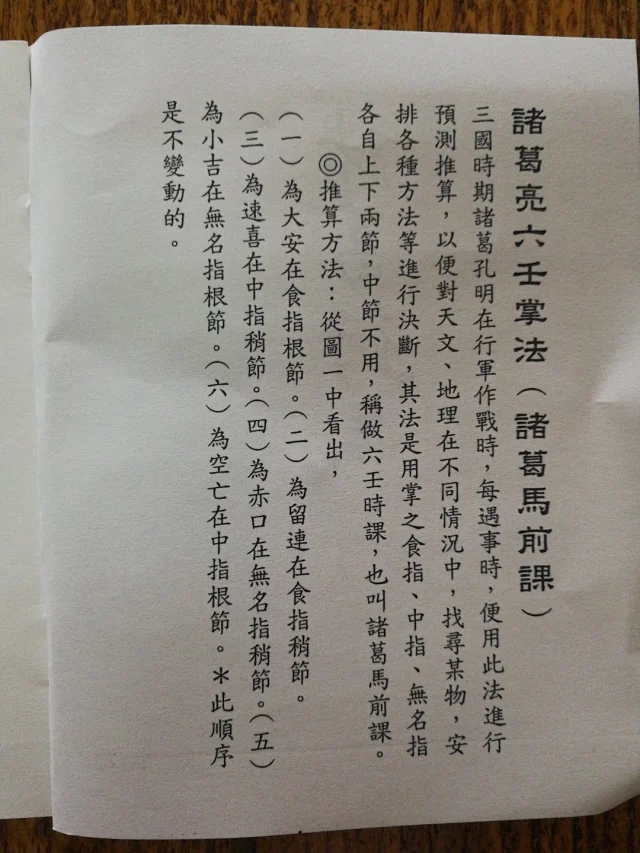 諸葛亮六壬掌法（諸葛馬前課）
三國時期諸葛孔明在行軍作戰時，每遇事時，便用此法進行
預測推算，以便對天文、地理在不同情況中，找尋某物，安
排各種方法等進行決斷，其法是用掌之食指、中指、無名指
各自上下兩節，中節不用，稱做六壬時課，也叫諸葛馬前課。
◎推算方法：從圖一中看出，
（一）為大安在食指根節。（二）為留連在食指稍節。
（三）為速喜在中指稍節。（四）為赤口在無名指稍節。（五）
為小吉在無名指根節。（六）為空亡在中指根節。＊此順序
是不變動的。